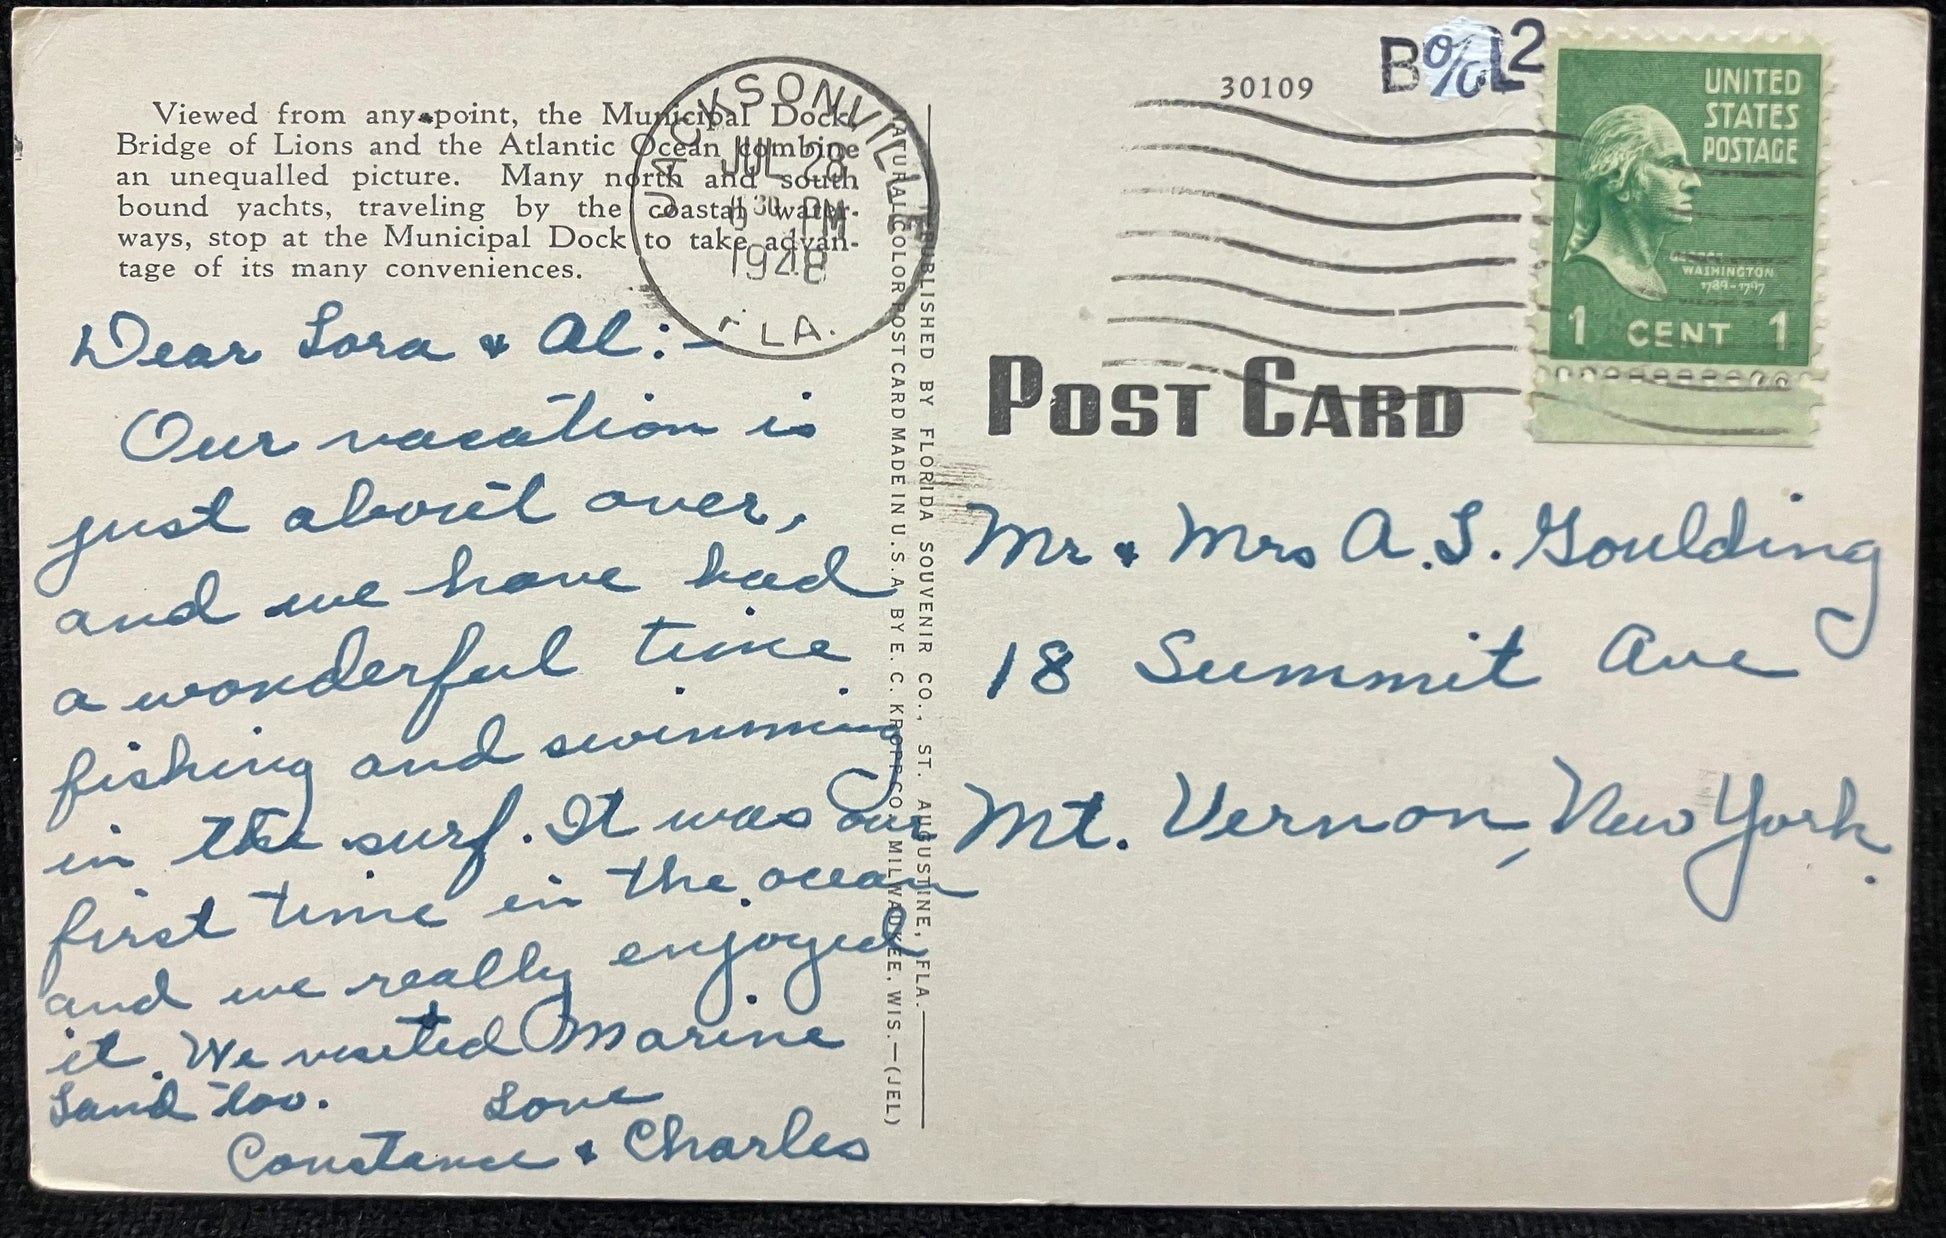 Viewed from any point, the Municipal Dock,
Bridge of Lions and the Atlantic Ocean combine
an unequalled picture. Many north and south
bound yachts, traveling by the coastal water-
ways, stop at the Municipal Dock to take advan-
tage of its many conveniences.
JACKSONVILLE
JUL 28
30 PM
1948
FLA.
Dear Lora & Al:-
Our vacation is
just about over,
and we have had
a wonderful time
fishing and swimming
in the surf. It was our
first time in the ocean
and we really enjoyed
it. We visited Marine
Land too. Love
Constance & Charles
NATURAL COLOR POST CARD MADE IN U.S.A. BY E. C. KROPP CO., MILWAUKEE, WIS.—(JEL)
PUBLISHED BY FLORIDA SOUVENIR CO., ST. AUGUSTINE, FLA.
30109
UNITED
STATES
POSTAGE
WASHINGTON
1789-1797
1 CENT 1
POST CARD
Mr & Mrs A. L. Goulding
18 Summit Ave
Mt. Vernon, New York.